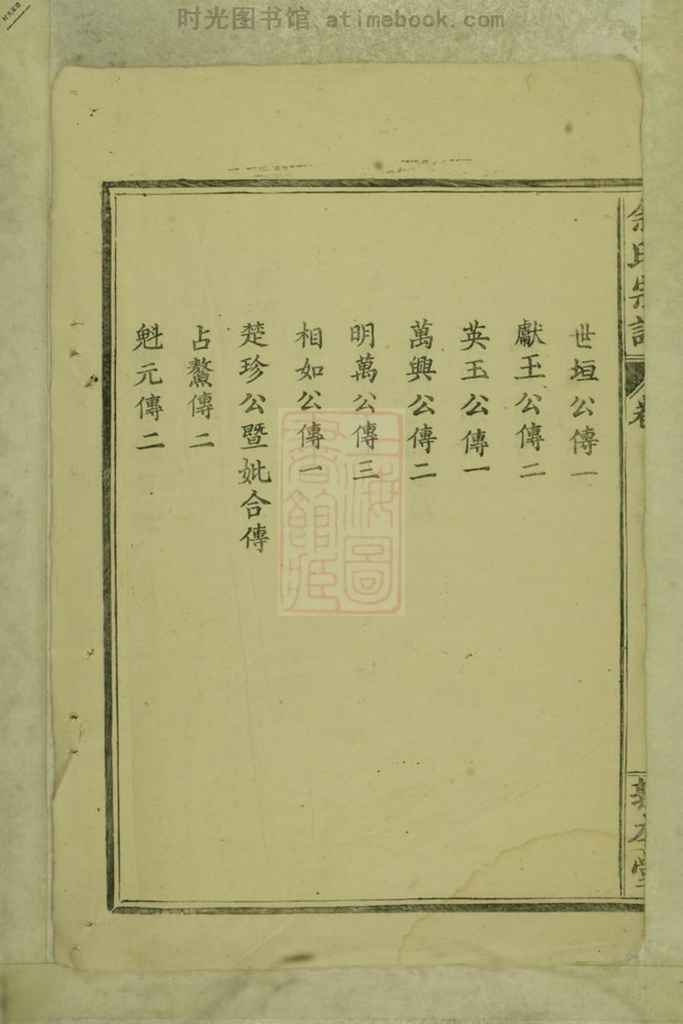 时光图书馆 atimebook.com
余氏宗譜
卷
敦本堂
世垣公傳一
獻玉公傳二
英玉公傳一
萬興公傳二
明萬公傳三
相如公傳一
楚珍公暨妣合傳
占鰲傳二
魁元傳二
上海圖書館藏